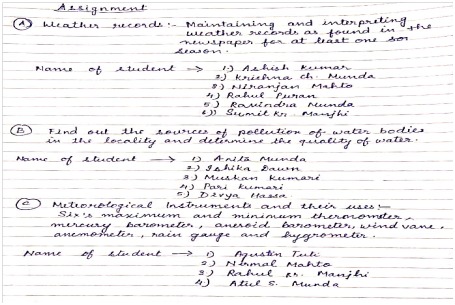 Assignment
(A) Weather records:- Maintaining and interpreting
weather records as found in the
newspaper for at least one
season.
Name of student → 1) Ashish Kumar
2) Krishna Ch. Munda
3) Niranjan Mahto
4) Rahul Puran
5) Ravindra Munda
6) Sumit Kr. Manjhi
(B) Find out the sources of pollution of water bodies
in the locality and determine the quality of water.
Name of student → 1) Anita Munda
2) Ishika Daun
3) Muskan Kumari
4) Pari Kumari
5) Divya Hassa
(C) Meteorological Instruments and their uses:-
Six's maximum and minimum thermometer,
mercury barometer, aneroid barometer, wind vane,
anemometer, rain gauge and hygrometer.
Name of student → 1) Agustin Tuti
2) Nirmal Mahto
3) Rahul Kr. Manjhi
4) Atul S. Munda